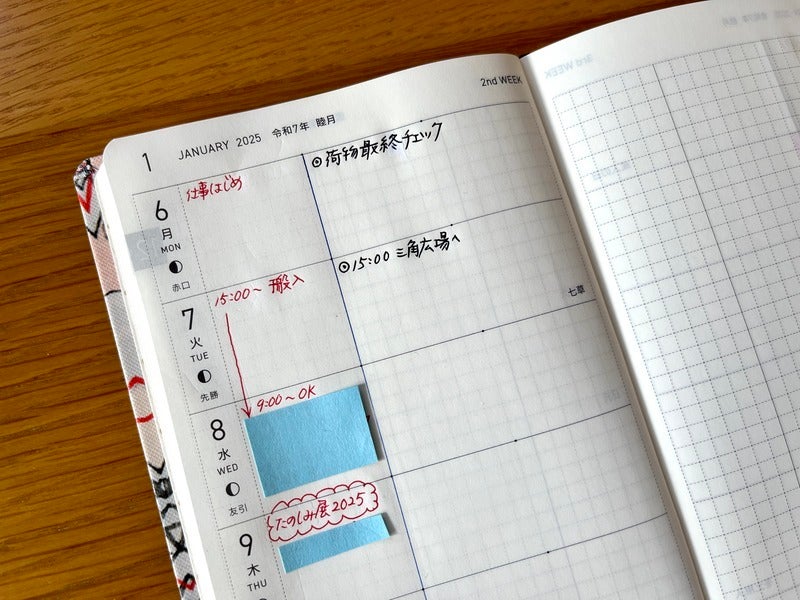 2nd WEEK
1 JANUARY 2025 令和7年 睦月
6
月
MON
赤口
仕事はじめ
◎荷物最終チェック
7
火
TUE
先勝
15:00〜 搬入
◎15:00 三角広場へ
七草
8
水
WED
友引
9:00〜OK
9
木
THU
たのしみ展2025
3rd WEEK